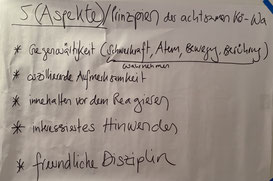 5 (Aspekte)/Prinzipien der achtsamen Kö-Wa
* Gegenwärtigkeit (Schwerkraft, Atem, Bewegg, Berührung)
wahrnehmen
* oszillierende Aufmerksamkeit
* innehalten vor dem Reagieren
* interessiertes Hinwenden
* freundliche Disziplin